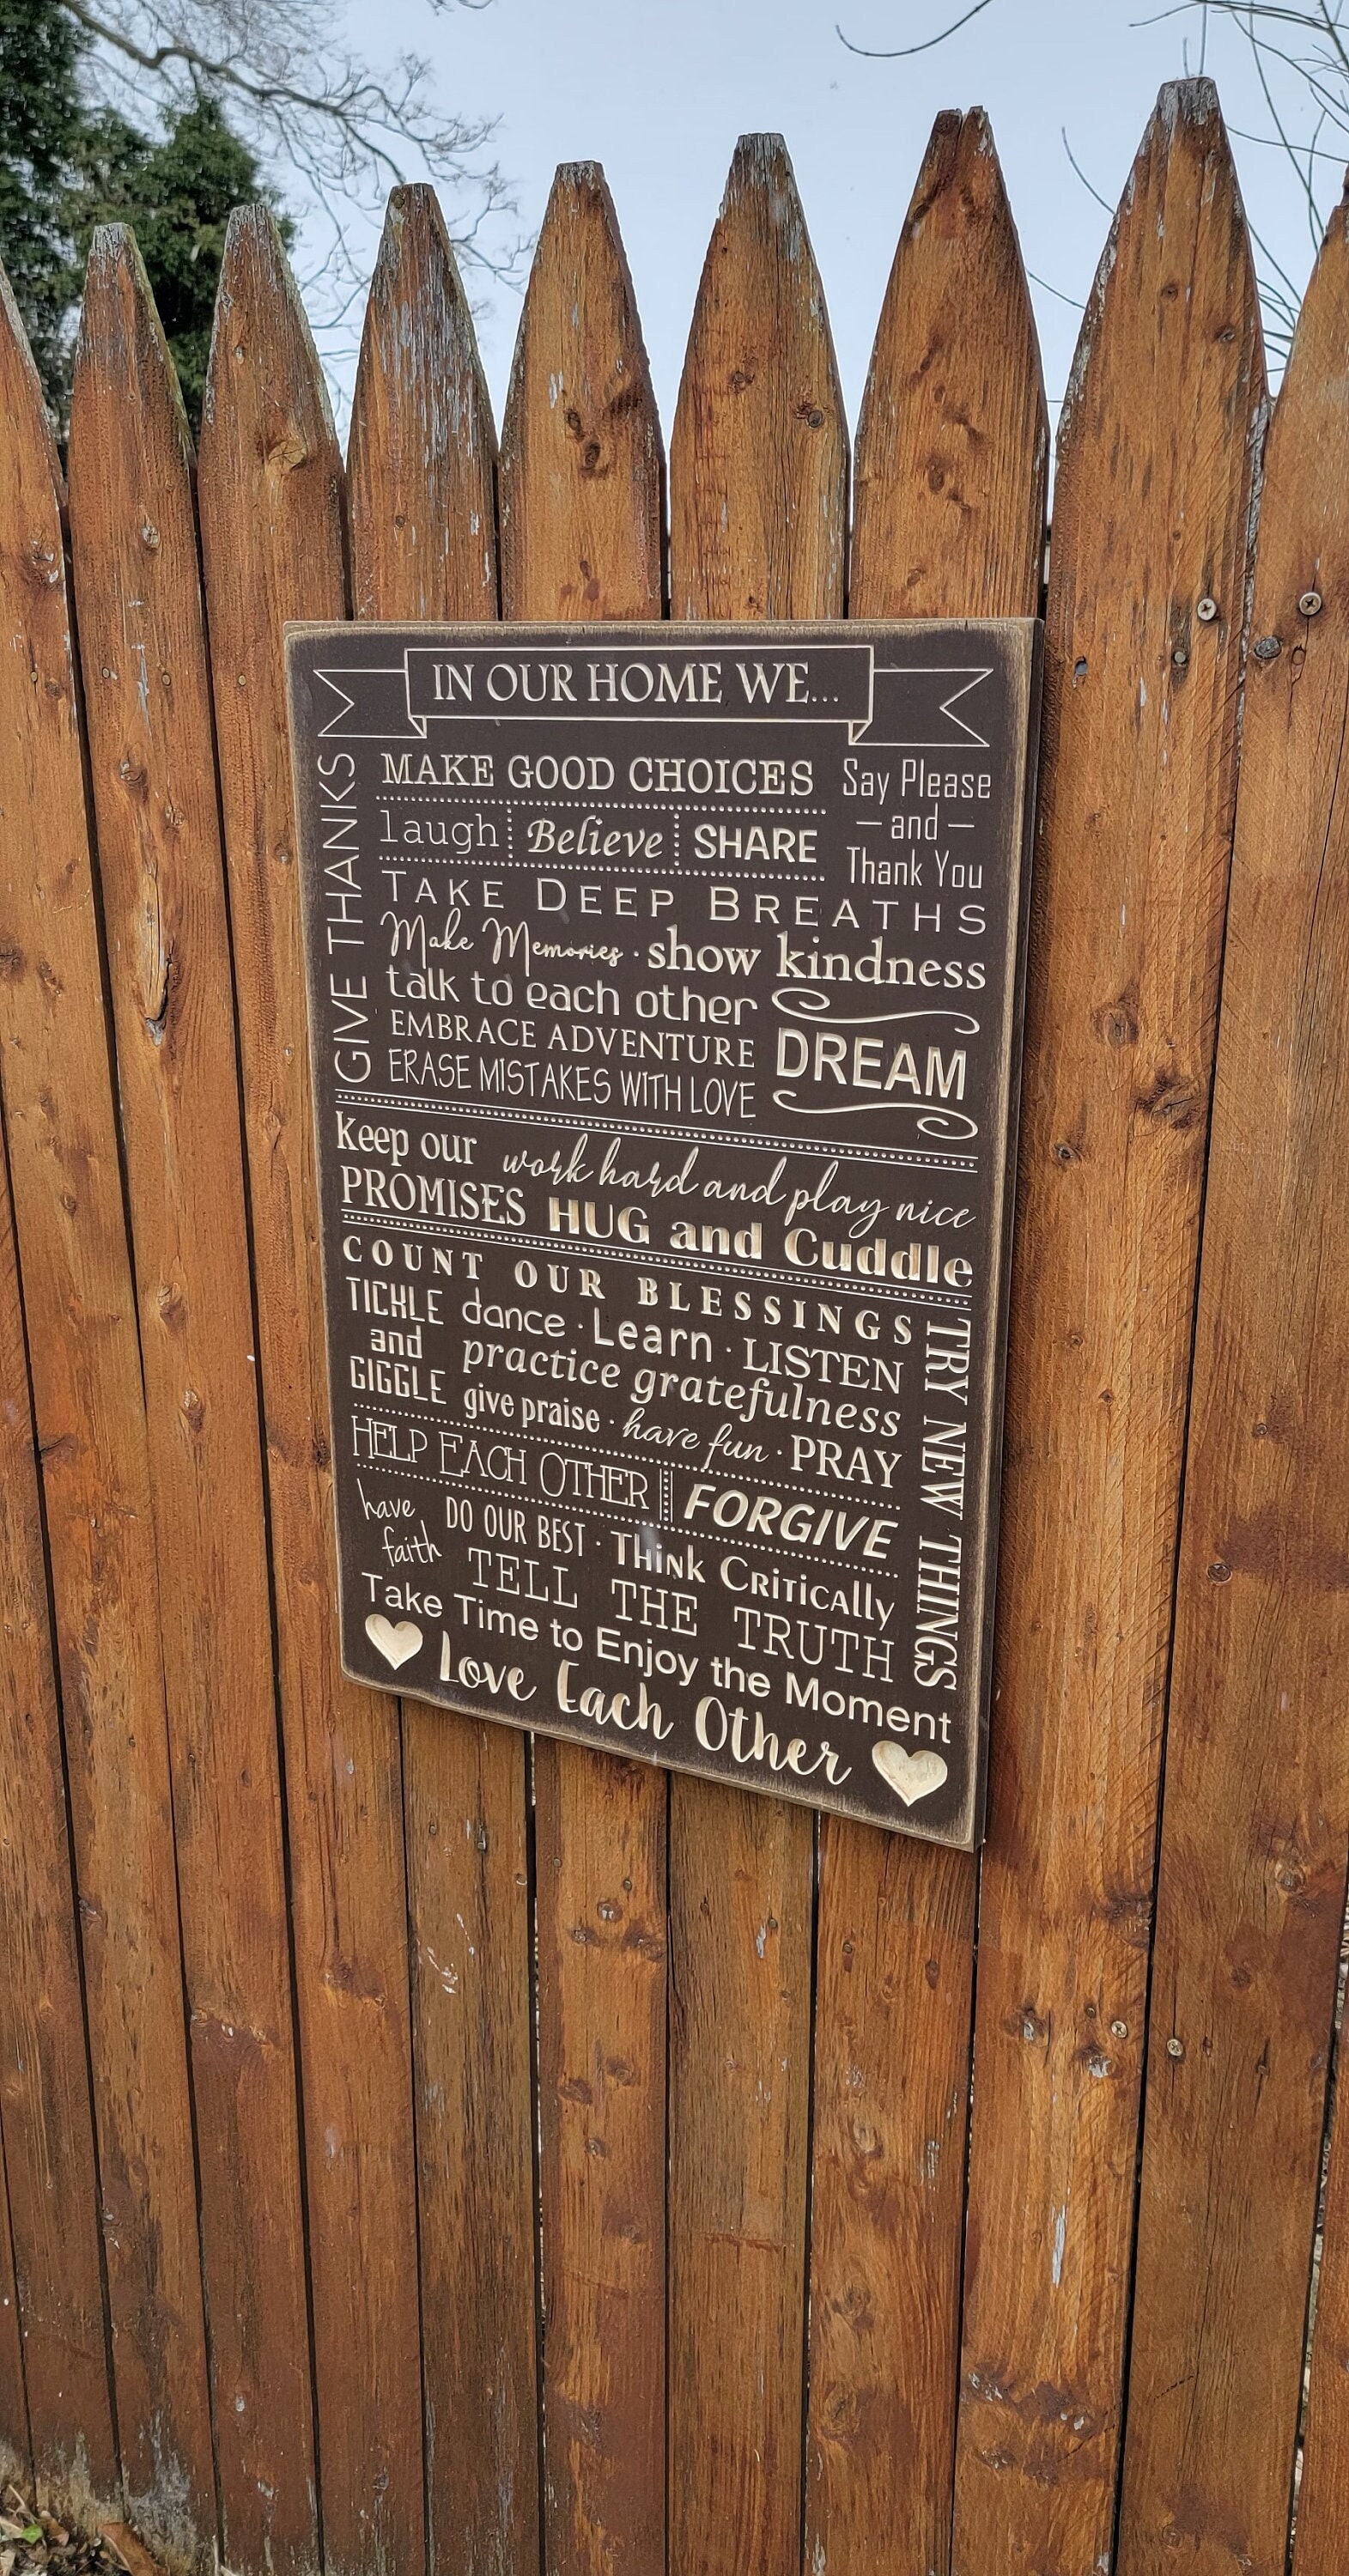 IN OUR HOME WE...
GIVE THANKS
MAKE GOOD CHOICES
laugh Believe SHARE
Say Please
- and -
Thank You
TAKE DEEP BREATHS
Make Memories · show kindness
talk to each other
EMBRACE ADVENTURE
ERASE MISTAKES WITH LOVE
DREAM
keep our
PROMISES
work hard and play nice
HUG and Cuddle
COUNT OUR BLESSINGS
TICKLE
and
GIGGLE
dance · Learn · LISTEN
practice gratefulness
give praise · have fun · PRAY
TRY NEW THINGS
HELP EACH OTHER FORGIVE
have
faith
DO OUR BEST · Think Critically
TELL THE TRUTH
Take Time to Enjoy the Moment
Love Each Other